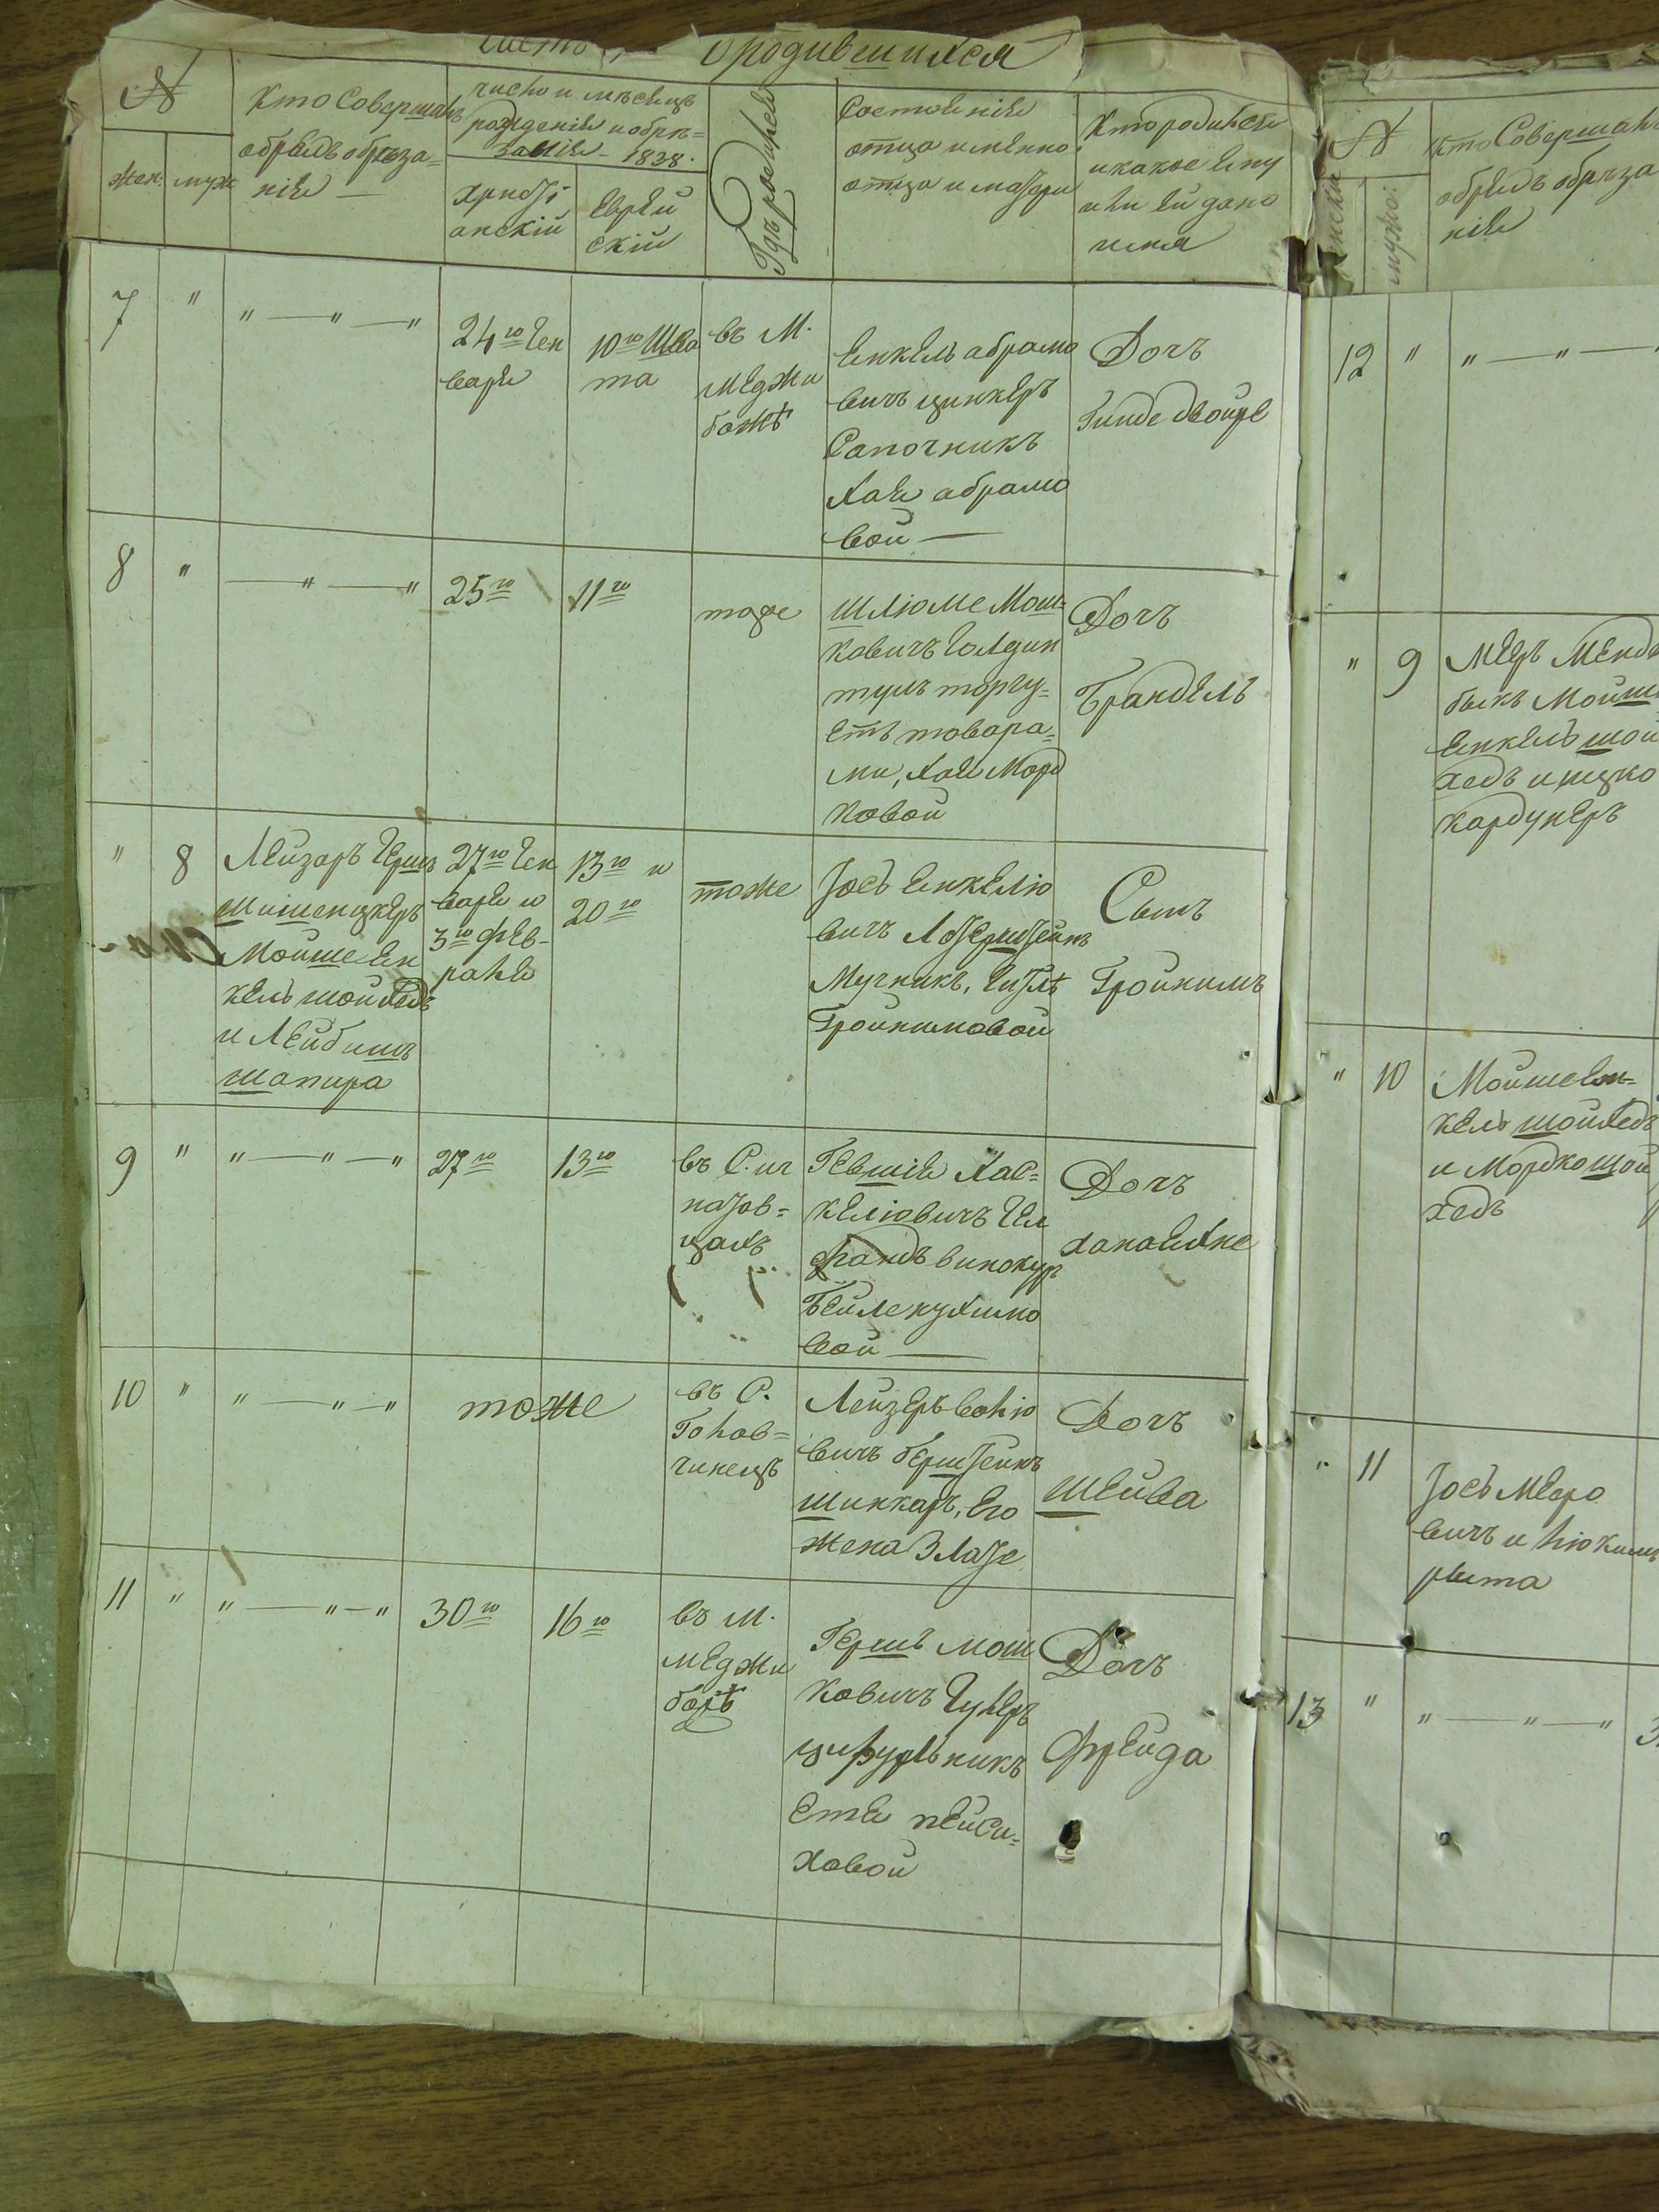 о родившихся
№
Жен.
муж
Кто Совершалъ
обрядъ обрѣза=
нія —
число и мѣсяцъ
рожденія и обрѣ=
занія - 1838.
христі
анскій
Еврей
скій
Гдѣ родился
Состояніе
отца имянно
отца и матери
Кто родился
и какое ему
или ей дано
имя
7 " " — " — "
24го Ген
варя
10го Шва
та
въ М.
Меджи
божѣ
Янкель абрамо
вичъ цинкеръ
Сапочникъ
Хая абрамо
вой —
Дочъ
Гинде двойре
8 " — " — "
25го
11го
тоже
Шлiоме Мош=
ковичъ Голдин
торгу=
етъ товара=
ми, Хая Морд
ковой
Дочъ
Брандель
" 8
Лейзаръ Герш
Мойше Ян
кель шойхедъ
и Лейбишъ
шапира
27го Ген
варя и
3го фев-
раля
13го и
20го
тоже
Іось Янкелю
вичъ
Мучникъ, Гитлѣ
Тройнимовой
Сынъ
Гройнимъ
9 " " — " — "
27го
13го
въ С. иг
натов=
цахъ
Гевшія Хас=
келіовичъ Гел
фандъ винокур
Бейле нухимо
вой —
Дочъ
ханаЯхне
10 " " — " — "
тоже
въ С.
Голов=
чинецъ
Лейзеръ волю
вичъ берштейнъ
шинкаръ, Его
жена Злате
Дочъ
Шейва
11 " " — " — "
30го
16го
въ М.
Меджи
божѣ
Гершъ мош
ковичъ
цирульникъ
Етя пейса=
ховой
Дочъ
Фрейда
№
мужс:
кто Совершалъ
обрядъ обрѣза
нія
12 " " — " —
" 9
Меръ Менд
быкъ Мойш
Янкель шой
хедъ и ицко
Кардунеръ
" 10
Мойше Ян=
кель шойхедъ
и Мордко шой
хедъ
" 11
Іось Меро
вичъ и Нюхимъ
рыта
13 " " — " — "